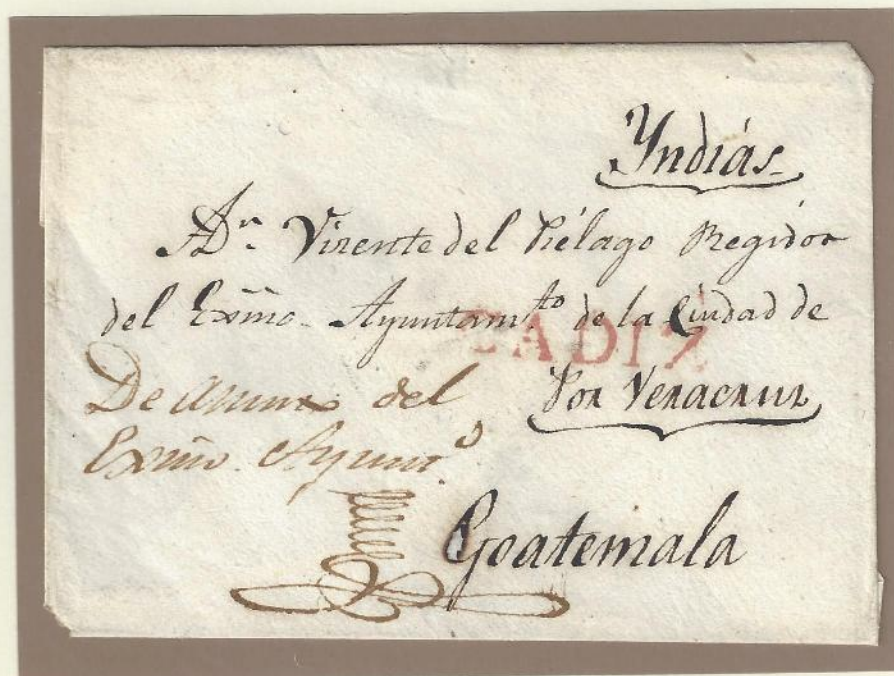 Yndias
A Dn. Vizente del Piélago Regidor
del Exmo. Ayuntamto. de la Ciudad de
CADIZ
Por Veracruz
De del
Exmo. Ayunto.
Goatemala